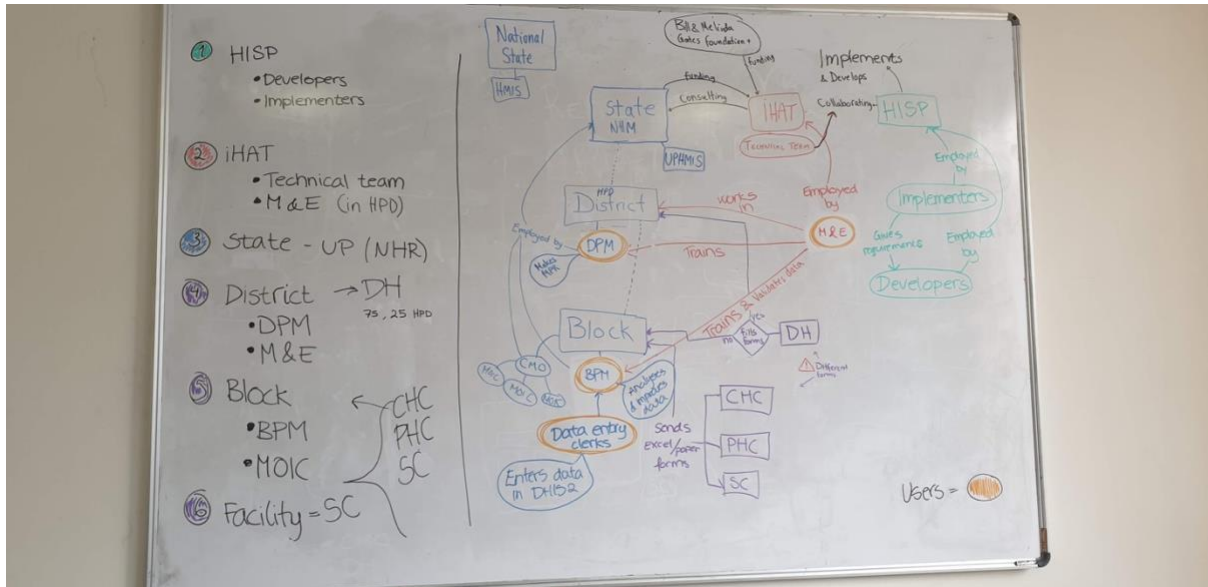 1 HISP
• Developers
• Implementers
2 iHAT
• Technical team
• M & E (in HPD)
3 State - UP (NHR)
4 District → DH
75, 25 HPD
• DPM
• M&E
5 Block
• BPM
• MOIC
CHC
PHC
SC
6 Facility = SC
National
State
HMIS
Bill & Melinda
Gates Foundation
funding
State
NHM
UPHMIS
funding
Consulting
iHAT
Technical Team
Implements
& Develops
Collaborating
HISP
Employed
by
Implementers
Gives
requirements
Employed
by
Developers
HPD
District
works
in
Employed
by
M&E
Employed by
DPM
Makes
Trains
Trains & Validates data
Block
yes
no
fills
forms
DH
Different
forms
CMO
MOIC
MOIC
BPM
Analyses
data
Data entry
clerks
Enters data
in DHIS2
Sends
excel/paper
forms
CHC
PHC
SC
Users =